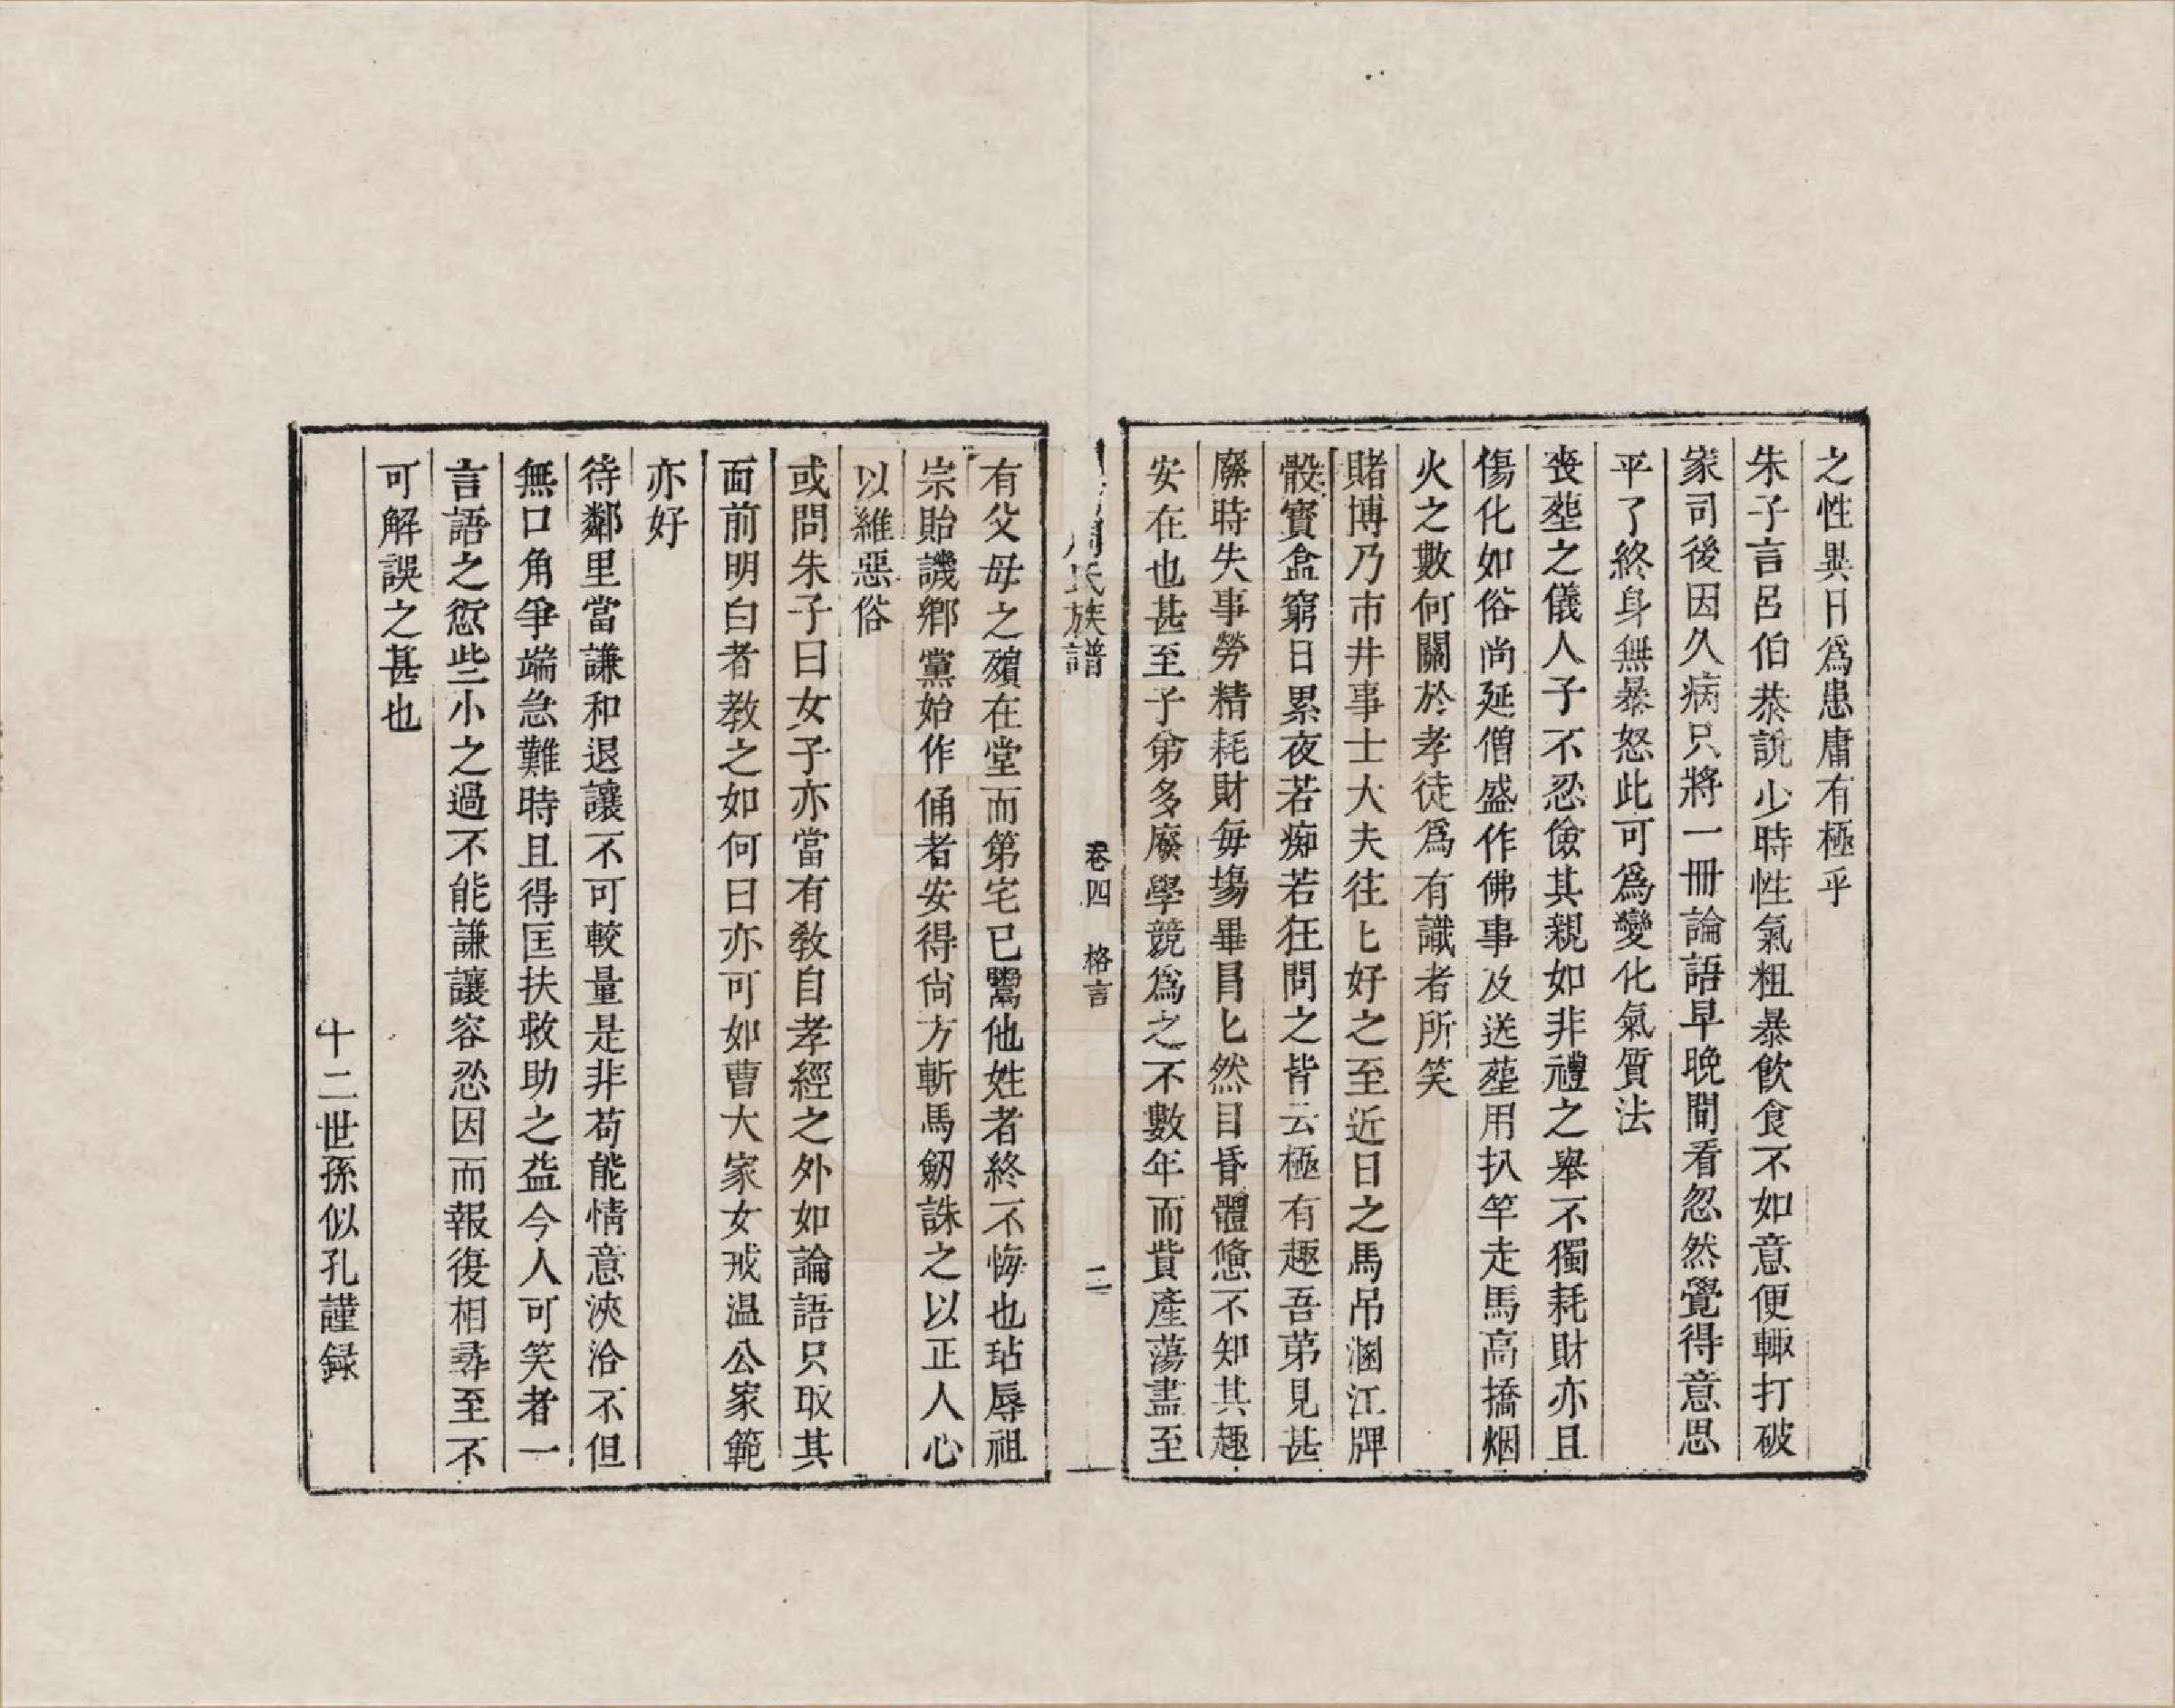 之性異日爲患庸有極乎
朱子言呂伯恭說少時性氣粗暴飲食不如意便輙打破
家司後因久病只將一冊論語早晚閒看忽然覺得意思
平了終身無暴怒此可爲變化氣質法
喪塟之儀人子不忍儉其親如非禮之舉不獨耗財亦且
傷化如俗尚延僧盛作佛事及送塟用扒竿走馬高撟烟
火之數何關於孝徒爲有識者所笑
賭博乃市井事士大夫往匕好之至近日之馬吊溷江牌
骰寶盒窮日累夜若痴若狂問之皆云極有趣吾苐見甚
廢時失事勞精耗財毎塲畢冐匕然目昏體憊不知其趣
安在也甚至子弟多廢學競爲之不數年而貲產蕩盡至
周氏族譜
卷四
格言
二
有父母之殯在堂而第宅已鬻他姓者終不悔也玷辱祖
宗貽譏鄉黨始作俑者安得尙方斬馬劒誅之以正人心
以維惡俗
或問朱子曰女子亦當有敎自孝經之外如論語只取其
面前明白者教之如何曰亦可如曹大家女戒温公家範
亦好
待鄰里當謙和退讓不可較量是非苟能情意浹洽不但
無口角爭端急難時且得匡扶救助之益今人可笑者一
言語之愆些小之過不能謙讓容忍因而報復相尋至不
可解誤之甚也
十二世孫似孔謹録